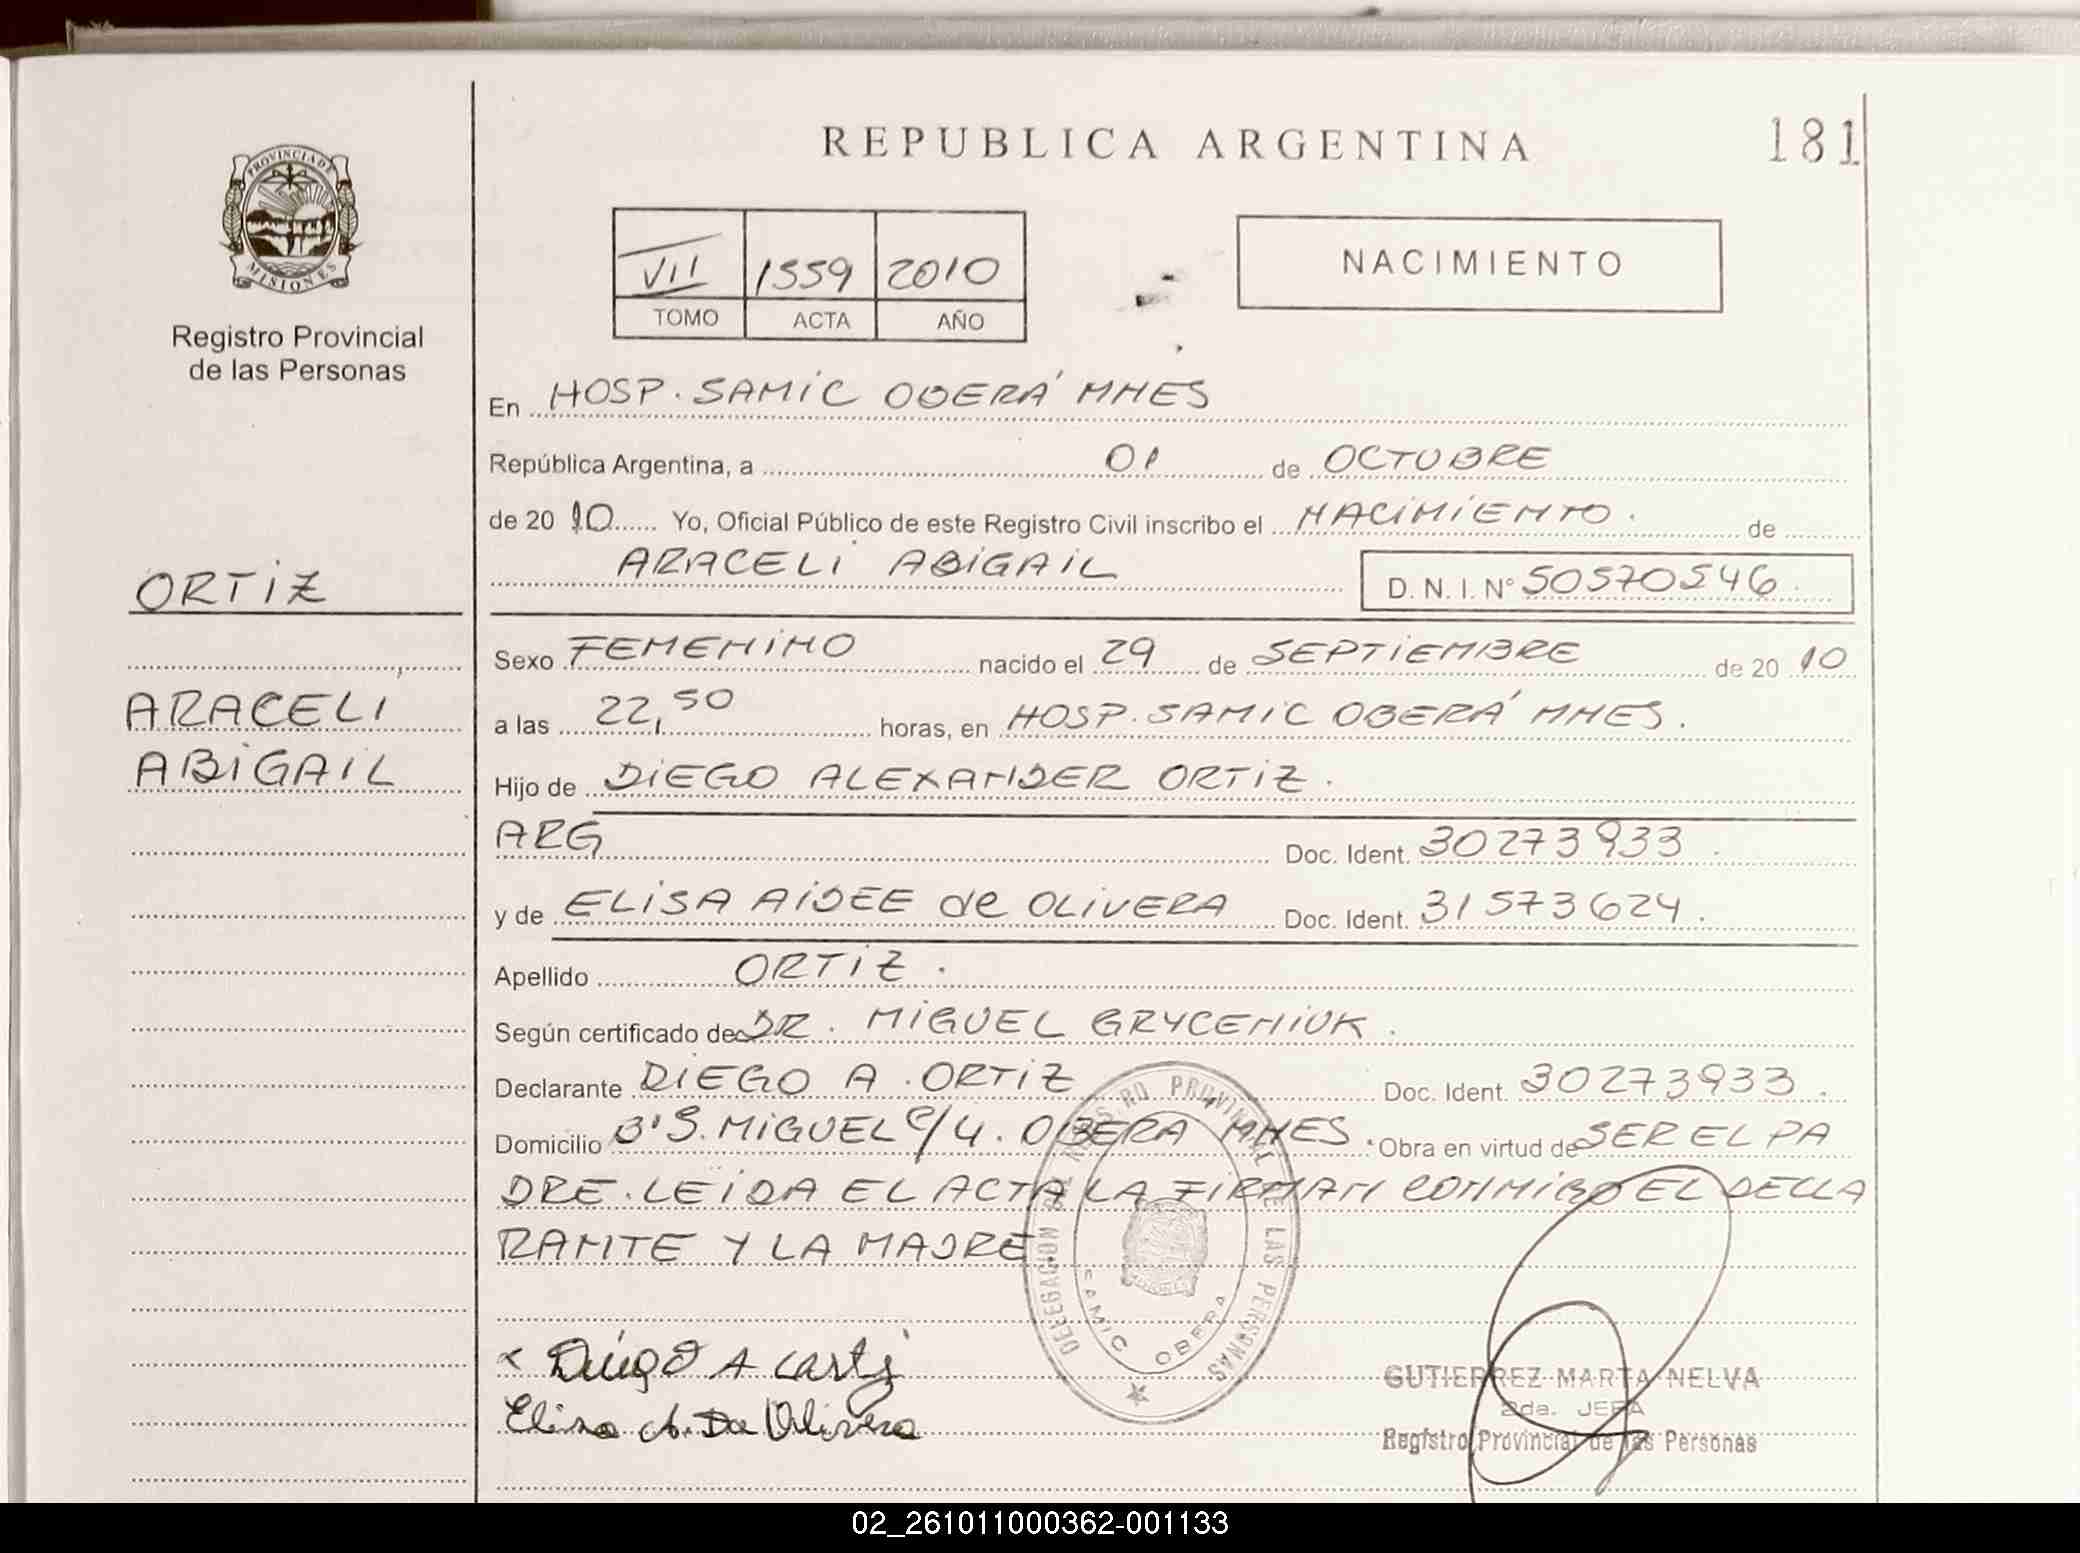 REPUBLICA ARGENTINA
181
PROVINCIA DE
MISIONES
Registro Provincial
de las Personas
VII 1559 2010
TOMO ACTA AÑO
NACIMIENTO
En HOSP. SAMIC OBERÁ MNES
República Argentina, a 01 de OCTUBRE
de 20 10 Yo, Oficial Público de este Registro Civil inscribo el NACIMIENTO. de
ARACELI ABIGAIL D. N. I. N° 50570546.
ORTIZ
ARACELI
ABIGAIL
Sexo FEMENINO nacido el 29 de SEPTIEMBRE de 20 10
a las 22,50 horas, en HOSP. SAMIC OBERÁ MNES.
Hijo de DIEGO ALEXANDER ORTIZ.
ARG Doc. Ident. 30273933.
y de ELISA AIDEE de OLIVERA Doc. Ident. 31573624.
Apellido ORTIZ.
Según certificado de DR. MIGUEL GRYCENIUK.
Declarante DIEGO A. ORTIZ Doc. Ident. 30273933.
Domicilio B'S. MIGUEL C/4. OBERA MNES. Obra en virtud de SER EL PA
DRE. LEIDA EL ACTA LA FIRMAN CONMIGO EL DECLA
RANTE Y LA MADRE
DELEGACION DEL REGISTRO PROVINCIAL DE LAS PERSONAS
SAMIC OBERA
x Diego A
Elisa A. De Olivera
GUTIERREZ MARTA NELVA
2da. JEFA
Registro Provincial de las Personas
02_261011000362-001133